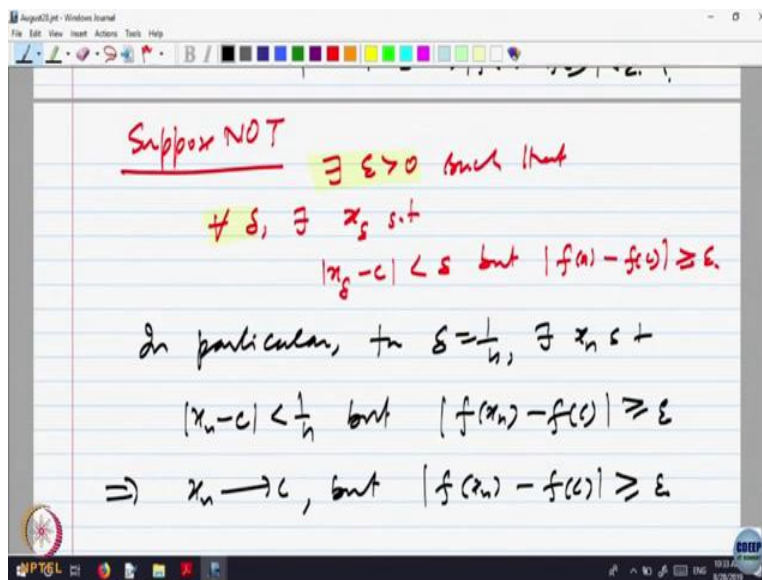 August28.jnt - Windows Journal
File Edit View Insert Actions Tools Help
B I
Suppose NOT
∃ ε > 0 such that
∀ δ, ∃ x_δ s.t
|x_δ - c| < δ but |f(x) - f(c)| ≥ ε.
In particular, for δ = 1/n, ∃ x_n s t
|x_n - c| < 1/n but |f(x_n) - f(c)| ≥ ε
⇒ x_n → c, but |f(x_n) - f(c)| ≥ ε.
NPTEL
CDEEP
IIT BOMBAY
ENG
10:33 AM
8/28/2019